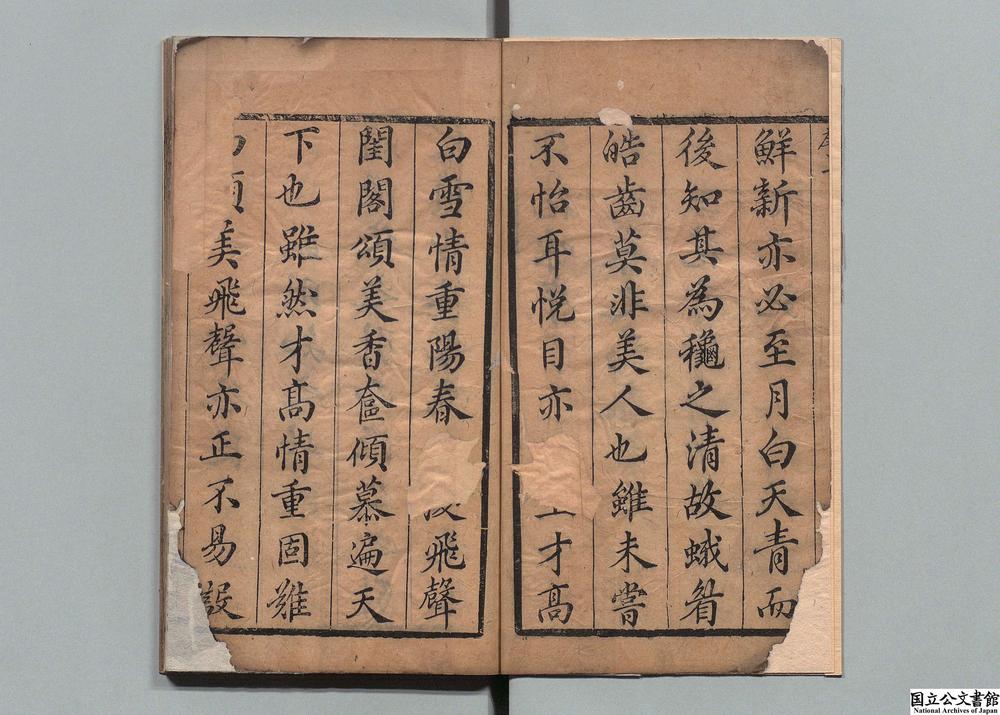 鮮新亦必至月白天青而
後知其為穐之清故蛾眉
皓齒莫非美人也雖未嘗
不怡耳悦目亦才髙
白雪情重陽春飛聲
閨閣頌美香奩傾慕遍天
下也雖然才髙情重固難
美飛聲亦正不易設
国立公文書館
National Archives of Japan